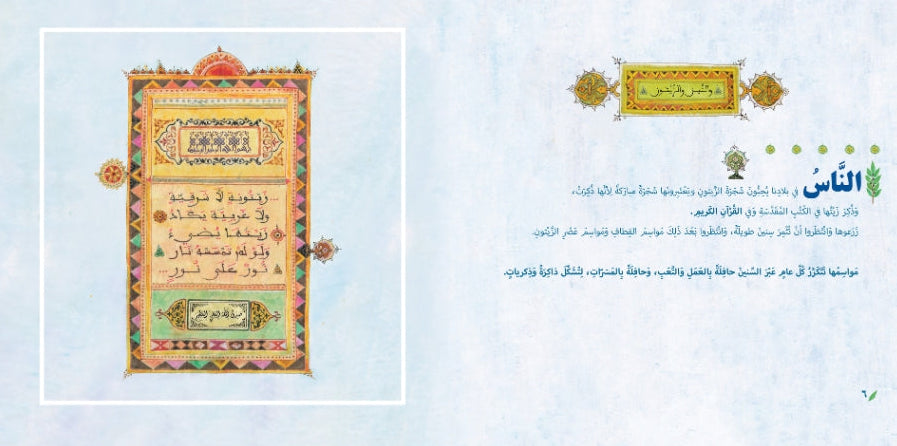 والتين والزيتون
النَّاسُ في بلادِنا يُحِبُّونَ شَجَرَةَ الزَّيتونِ وَيَعْتَبِرونَها شَجَرَةً مبارَكَةً لِأَنَّها ذُكِرَتْ،
وَذُكِرَ زَيْتُها في الكُتُبِ المُقَدَّسَةِ وَفي القُرْآنِ الكَريمِ.
زَرَعوها وَانْتَظَروا أَنْ تُثْمِرَ سِنينَ طويلَةً، وَانْتَظَروا بَعْدَ ذلِكَ مَواسِمَ القِطافِ وَمَواسِمَ عَصْرِ الزَّيْتونِ.
مَواسِمُها تَتَكَرَّرُ كُلَّ عامٍ عَبْرَ السِّنينَ حافِلَةً بِالعَمَلِ وَالتَّعَبِ، وَحافِلَةً بِالمَسَرّاتِ، لِتُشَكِّلَ ذاكِرَةً وَذِكْرياتٍ.
٦
... زيتونة لا شرقية
ولا غربية يكاد
زيتها يضيء
ولو لم تمسسه نار
نور على نور ...
صدق الله العلي العظيم